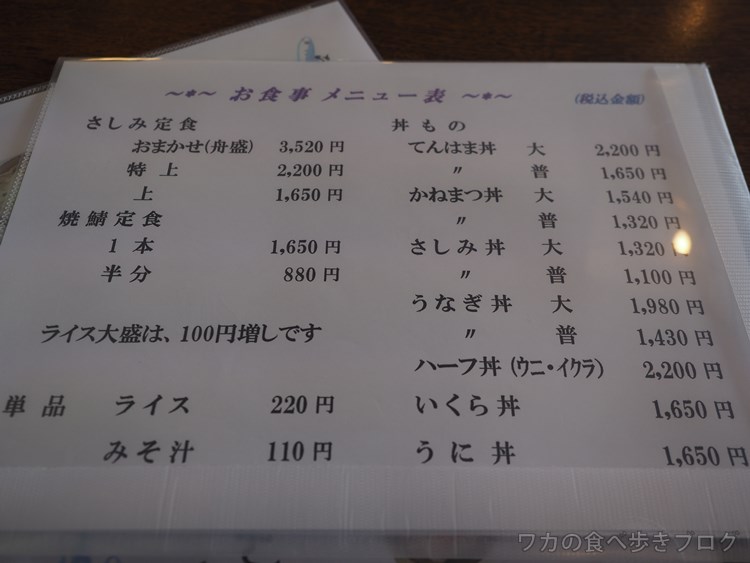 ～*～ お食事 メニュー表 ～*～ (税込金額)
さしみ定食
おまかせ(舟盛) 3,520 円
特 上 2,200 円
上 1,650 円
焼鯖定食
1 本 1,650 円
半分 880 円
ライス大盛は、100円増しです
単 品 ライス 220 円
みそ汁 110 円
丼もの
てんはま丼 大 2,200 円
〃 普 1,650 円
かねまつ丼 大 1,540 円
〃 普 1,320 円
さしみ丼 大 1,320 円
〃 普 1,100 円
うなぎ丼 大 1,980 円
〃 普 1,430 円
ハーフ丼 (ウニ・イクラ) 2,200 円
いくら丼 1,650 円
うに丼 1,650 円
ワカの食べ歩きブログ